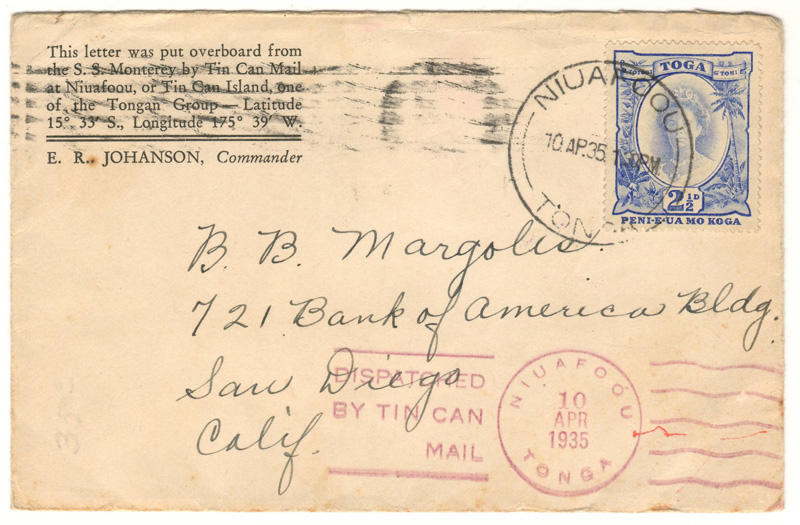 This letter was put overboard from
the S. S. Monterey by Tin Can Mail
at Niuafoou, or Tin Can Island, one
of the Tongan Group — Latitude
15° 33' S., Longitude 175° 39' W.
E. R. JOHANSON, Commander
NIUAFOOU
10. AP. 35.
TONGA
TOGA
2½D
PENI·E·UA MO KOGA
B. B. Margolis.
721 Bank of America Bldg.
San Diego
Calif.
DISPATCHED
BY TIN CAN
MAIL
NIUAFOOU
10
APR
1935
TONGA